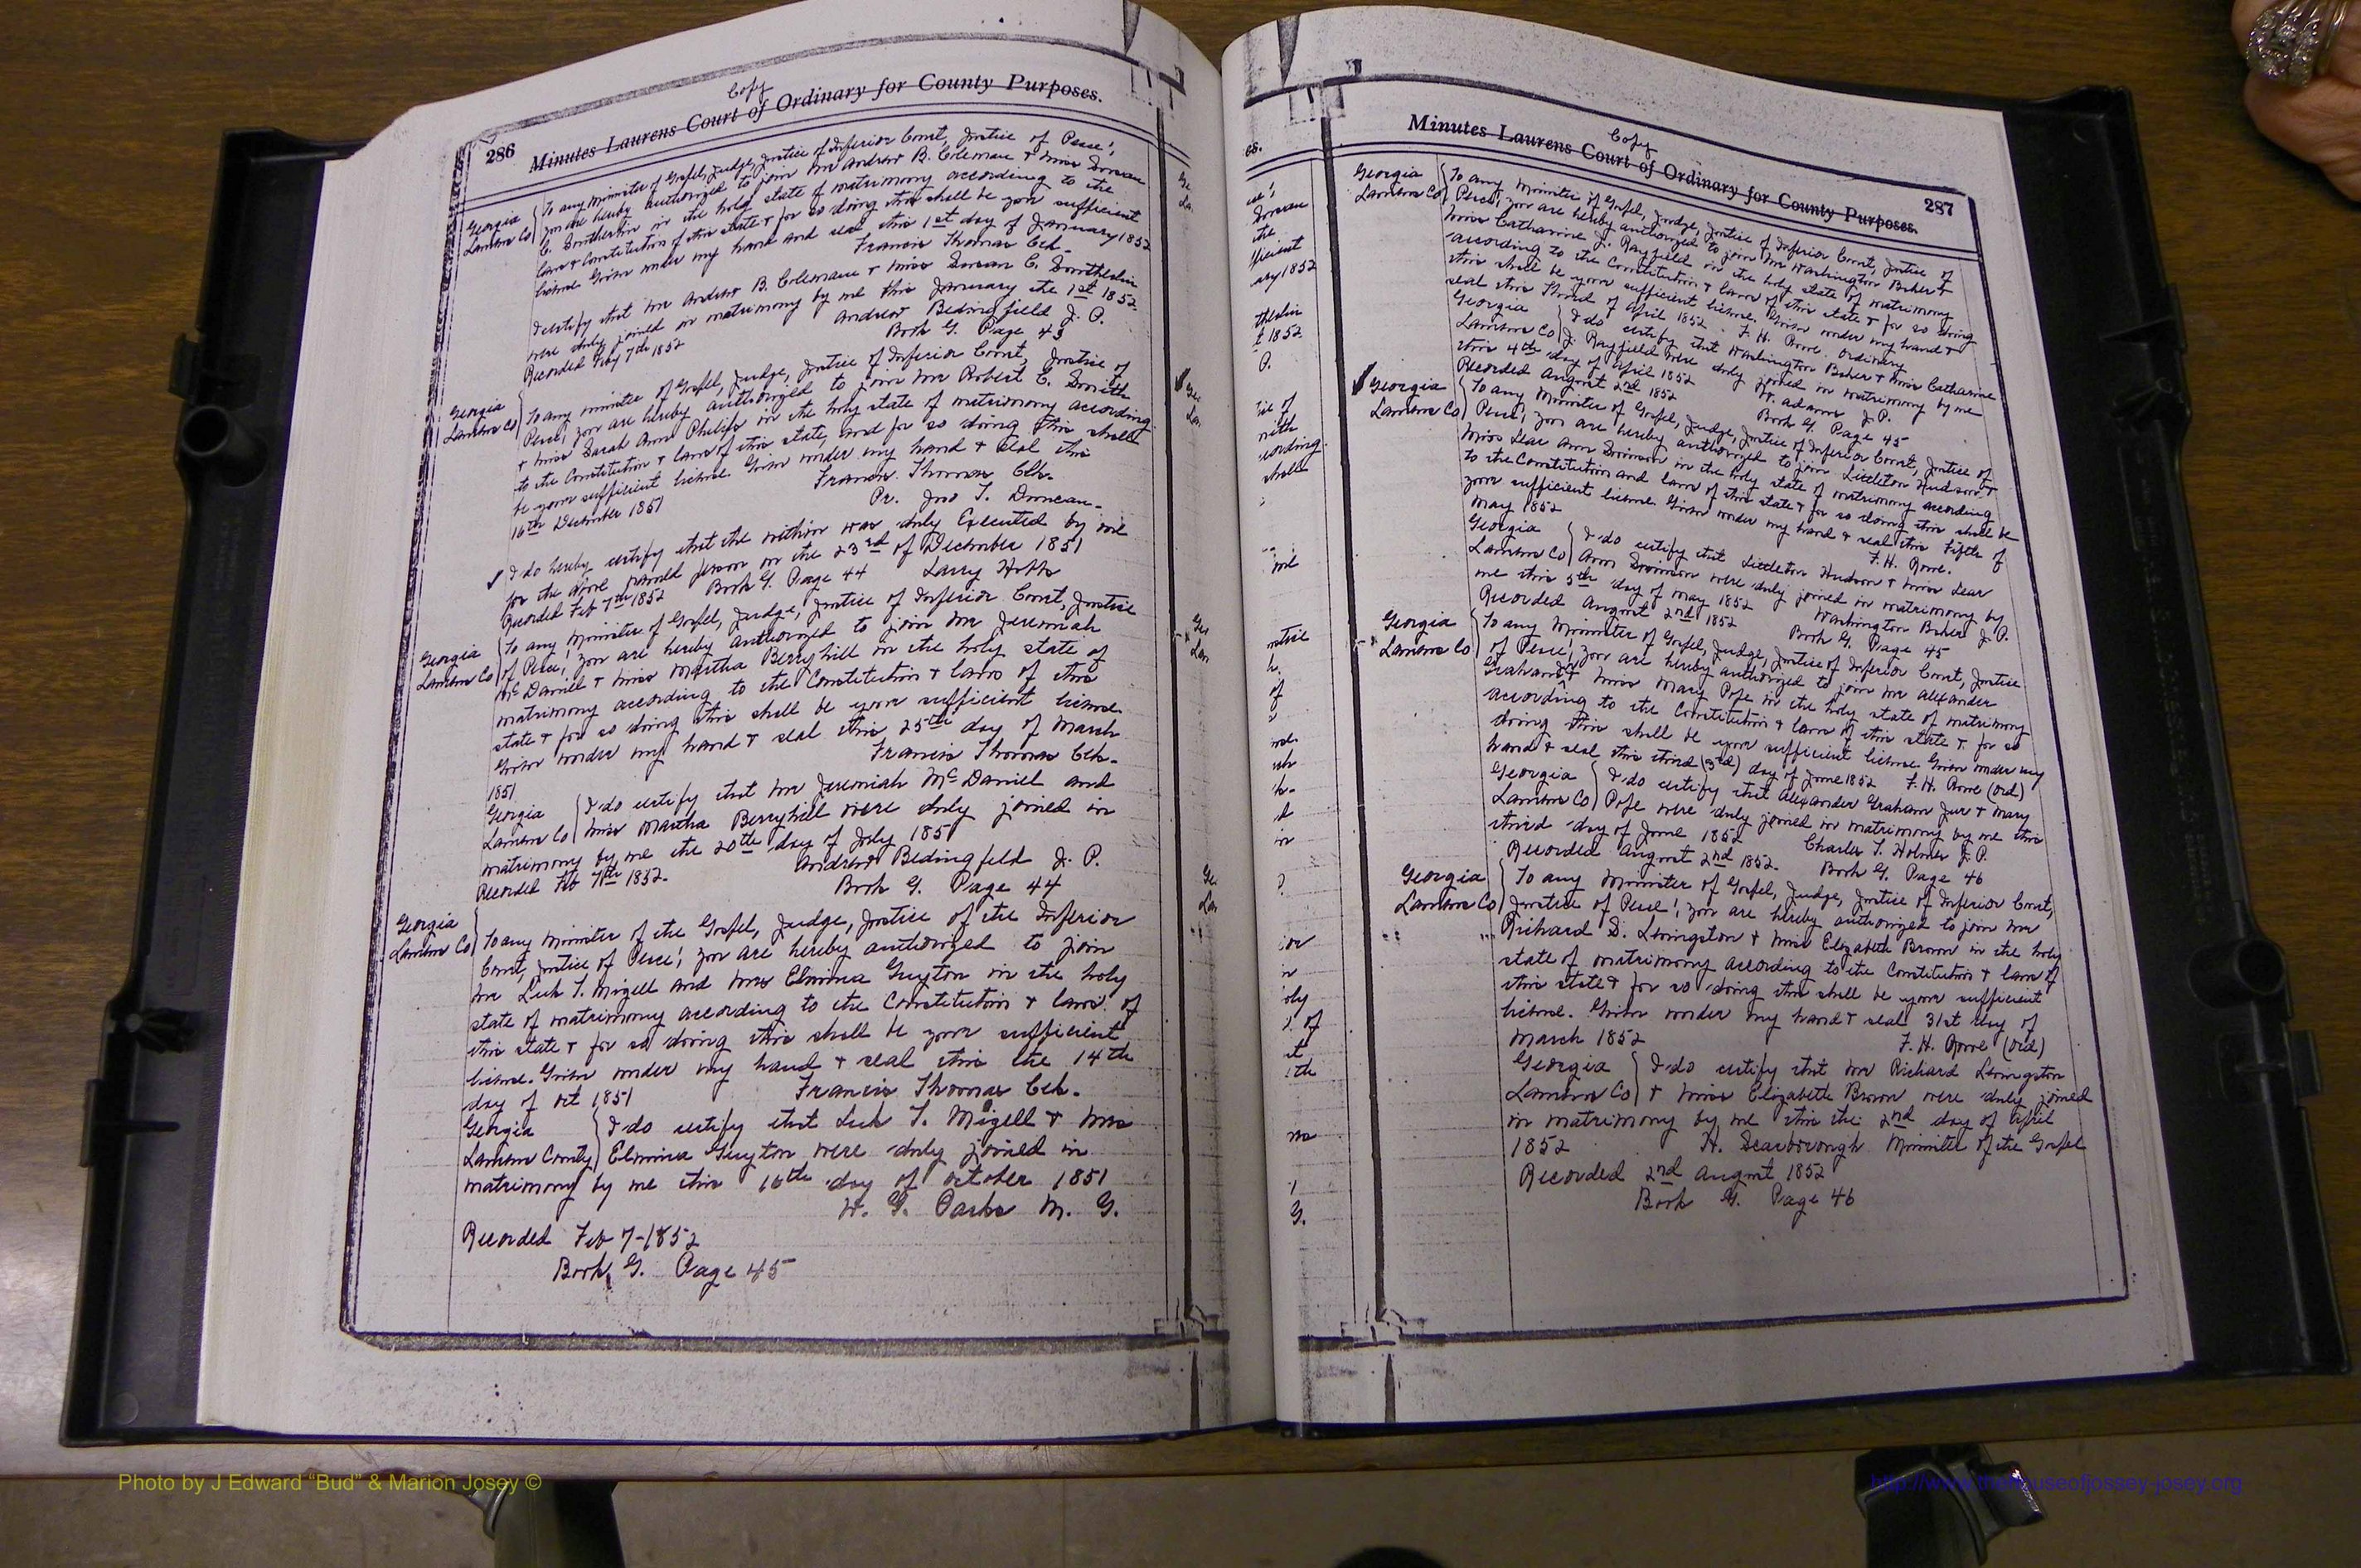 Copy
286 Minutes Laurens Court of Ordinary for County Purposes.
Georgia
Laurens Co
To any Minister of Gospel, Judge, Justice of Inferior Court, Justice of Peace',
you are hereby authorized to join Mr Andrew B. Coleman & Miss Susan
C. Smitherlin in the holy state of matrimony according to the
laws & Constitution of this state & for so doing this shall be your sufficient
license Given under my hand and seal this 1st day of January 1852
Francis Thomas Clk.
I certify that Mr Andrew B. Coleman & Miss Susan C.
were duly joined in matrimony by me this January the 1st 1852.
Andrew Bedingfield J. P.
Recorded Feby 7th 1852
Book G. Page 43
Georgia
Laurens Co
To any minister of Gospel, Judge, Justice of Inferior Court, Justice of
Peace', you are hereby authorized to join Mr Robert C. Smith
& Miss Sarah Ann Philips in the holy state of matrimony according
to the Constitution & laws of this state, and for so doing this shall
be your sufficient license Given under my hand & seal this
16th December 1851
Francis Thomas Clk.
Pr. Jno T. Duncan.
I do hereby certify that the within was duly Executed by me
for the above named person on the 23rd of December 1851
Recorded Feb 7th 1852 Book G. Page 44 Larry Hobbs
Georgia
Laurens Co
To any Minister of Gospel, Judge, Justice of Inferior Court, Justice
of Peace', you are hereby authorized to join Mr Jeremiah
McDaniel & Miss Martha Berryhill in the holy state of
matrimony according to the Constitution & laws of this
state & for so doing this shall be your sufficient license.
Given under my hand & seal this 25th day of March
1851
Francis Thomas Clk.
Georgia
Laurens Co
I do certify that Mr Jeremiah McDaniel and
Miss Martha Berryhill were duly joined in
matrimony by me the 20th day of July 1851
Andrew Bedingfield J. P.
Recorded Feb 7th 1852.
Book G. Page 44
Georgia
Laurens Co
To any Minister of the Gospel, Judge, Justice of the Inferior
Court, Justice of Peace', you are hereby authorized to join
Mr Luk T. Mizell and Mrs Elmina Guyton in the holy
state of matrimony according to the Constitution & laws of
this state & for so doing this shall be your sufficient
license. Given under my hand & seal this the 14th
day of Oct 1851 Francis Thomas Clk.
Georgia
Laurens County
I do certify that Luk T. Mizell & Mrs
Elmina Guyton were duly joined in
matrimony by me this 16th day of October 1851
W. G. Parks M. G.
Recorded Feb 7-1852
Book G. Page 45
Copy
Minutes Laurens Court of Ordinary for County Purposes. 287
Georgia
Laurens Co
To any Minister of Gospel, Judge, Justice of Inferior Court, Justice of
Peace', you are hereby authorized to join Mr Washington Baker &
Miss Catharine J. Rayfield in the holy state of matrimony
according to the Constitution & laws of this state & for so doing
this shall be your sufficient license. Given under my hand &
seal this Third of April 1852. F. H. Rowe. Ordinary
Georgia
Laurens Co
I do certify that Washington Baker & Miss Catharine
J. Rayfield were duly joined in matrimony by me
this 4th day of April 1852 Adams J. P.
Recorded August 2nd 1852 Book G. Page 45
Georgia
Laurens Co
To any Minister of Gospel, Judge, Justice of Inferior Court, Justice of
Peace', you are hereby authorized to join Littleton Hudson &
Miss Lear Ann in the holy state of matrimony according
to the Constitution and laws of this state & for so doing this shall be
your sufficient license. Given under my hand & seal this Fifth of
May 1852 F. H. Rowe.
Georgia
Laurens Co
I do certify that Littleton Hudson & Miss Lear
Ann were duly joined in matrimony by
me this 5th day of May 1852 Washington Baker J. P.
Recorded August 2nd 1852 Book G. Page 45
Georgia
Laurens Co
To any Minister of Gospel, Judge, Justice of Inferior Court, Justice
of Peace', you are hereby authorized to join Mr Alexander
Graham Jr & Miss Mary Pope in the holy state of matrimony
according to the Constitution & laws of this state & for so
doing this shall be your sufficient license Given under my
hand & seal this third (3rd) day of June 1852 F. H. Rowe (Ord)
Georgia
Laurens Co
I do certify that Alexander Graham Junr & Mary
Pope were duly joined in matrimony by me this
third day of June 1852 Charles T. Holmes J. P.
Recorded August 2nd 1852. Book G. Page 46
Georgia
Laurens Co
To any Minister of Gospel, Judge, Justice of Inferior Court,
Justice of Peace', you are hereby authorized to join Mr
Richard S. Livingston & Miss Elizabeth Brown in the holy
state of matrimony according to the Constitution & laws of
this state & for so doing this shall be your sufficient
license. Given under my hand & seal 31st day of
March 1852 F. H. Rowe (Ord)
Georgia
Laurens Co
I do certify that Mr Richard Livingston
& Miss Elizabeth Brown were duly joined
in matrimony by me this the 2nd day of April
1852 H. Scarborough Minister of the Gospel
Recorded 2nd August 1852
Book G. Page 46
Photo by J Edward “Bud” & Marion Josey ©
http://www.thehouseofjossey-josey.org